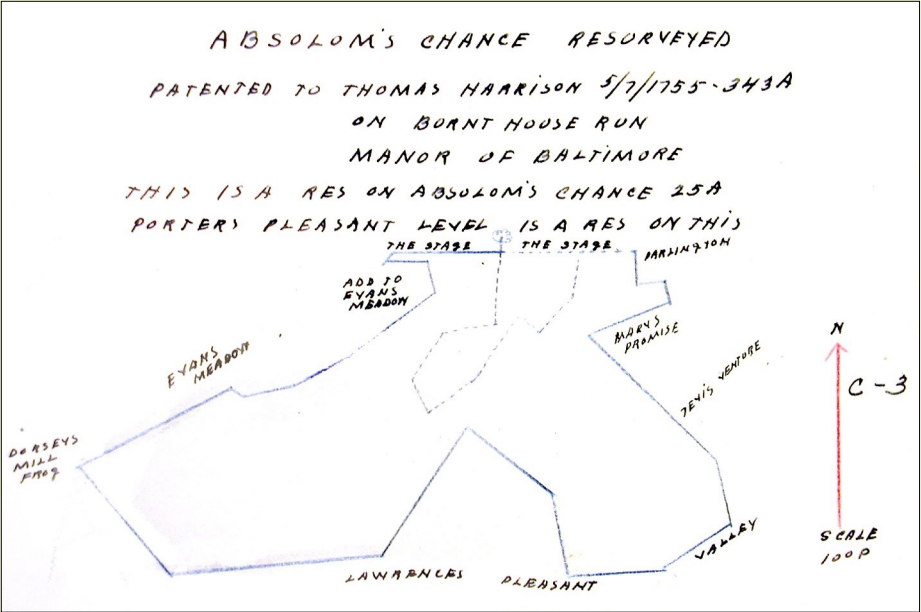 ABSOLOM'S CHANCE RESURVEYED
PATENTED TO THOMAS HARRISON 5/7/1755-343A
ON BURNT HOUSE RUN
MANOR OF BALTIMORE
THIS IS A RES ON ABSOLOM'S CHANCE 25A
PORTERS PLEASANT LEVEL IS A RES ON THIS
THE STAGE THE STAGE
PARLINGTON
ADD TO
EVANS
MEADOW
MARYS
PROMISE
EVANS
MEADOW
TEVIS VENTURE
N
C-3
DORSEYS
MILL
FROG
VALLEY
SCALE
100P
LAWRENCES PLEASANT